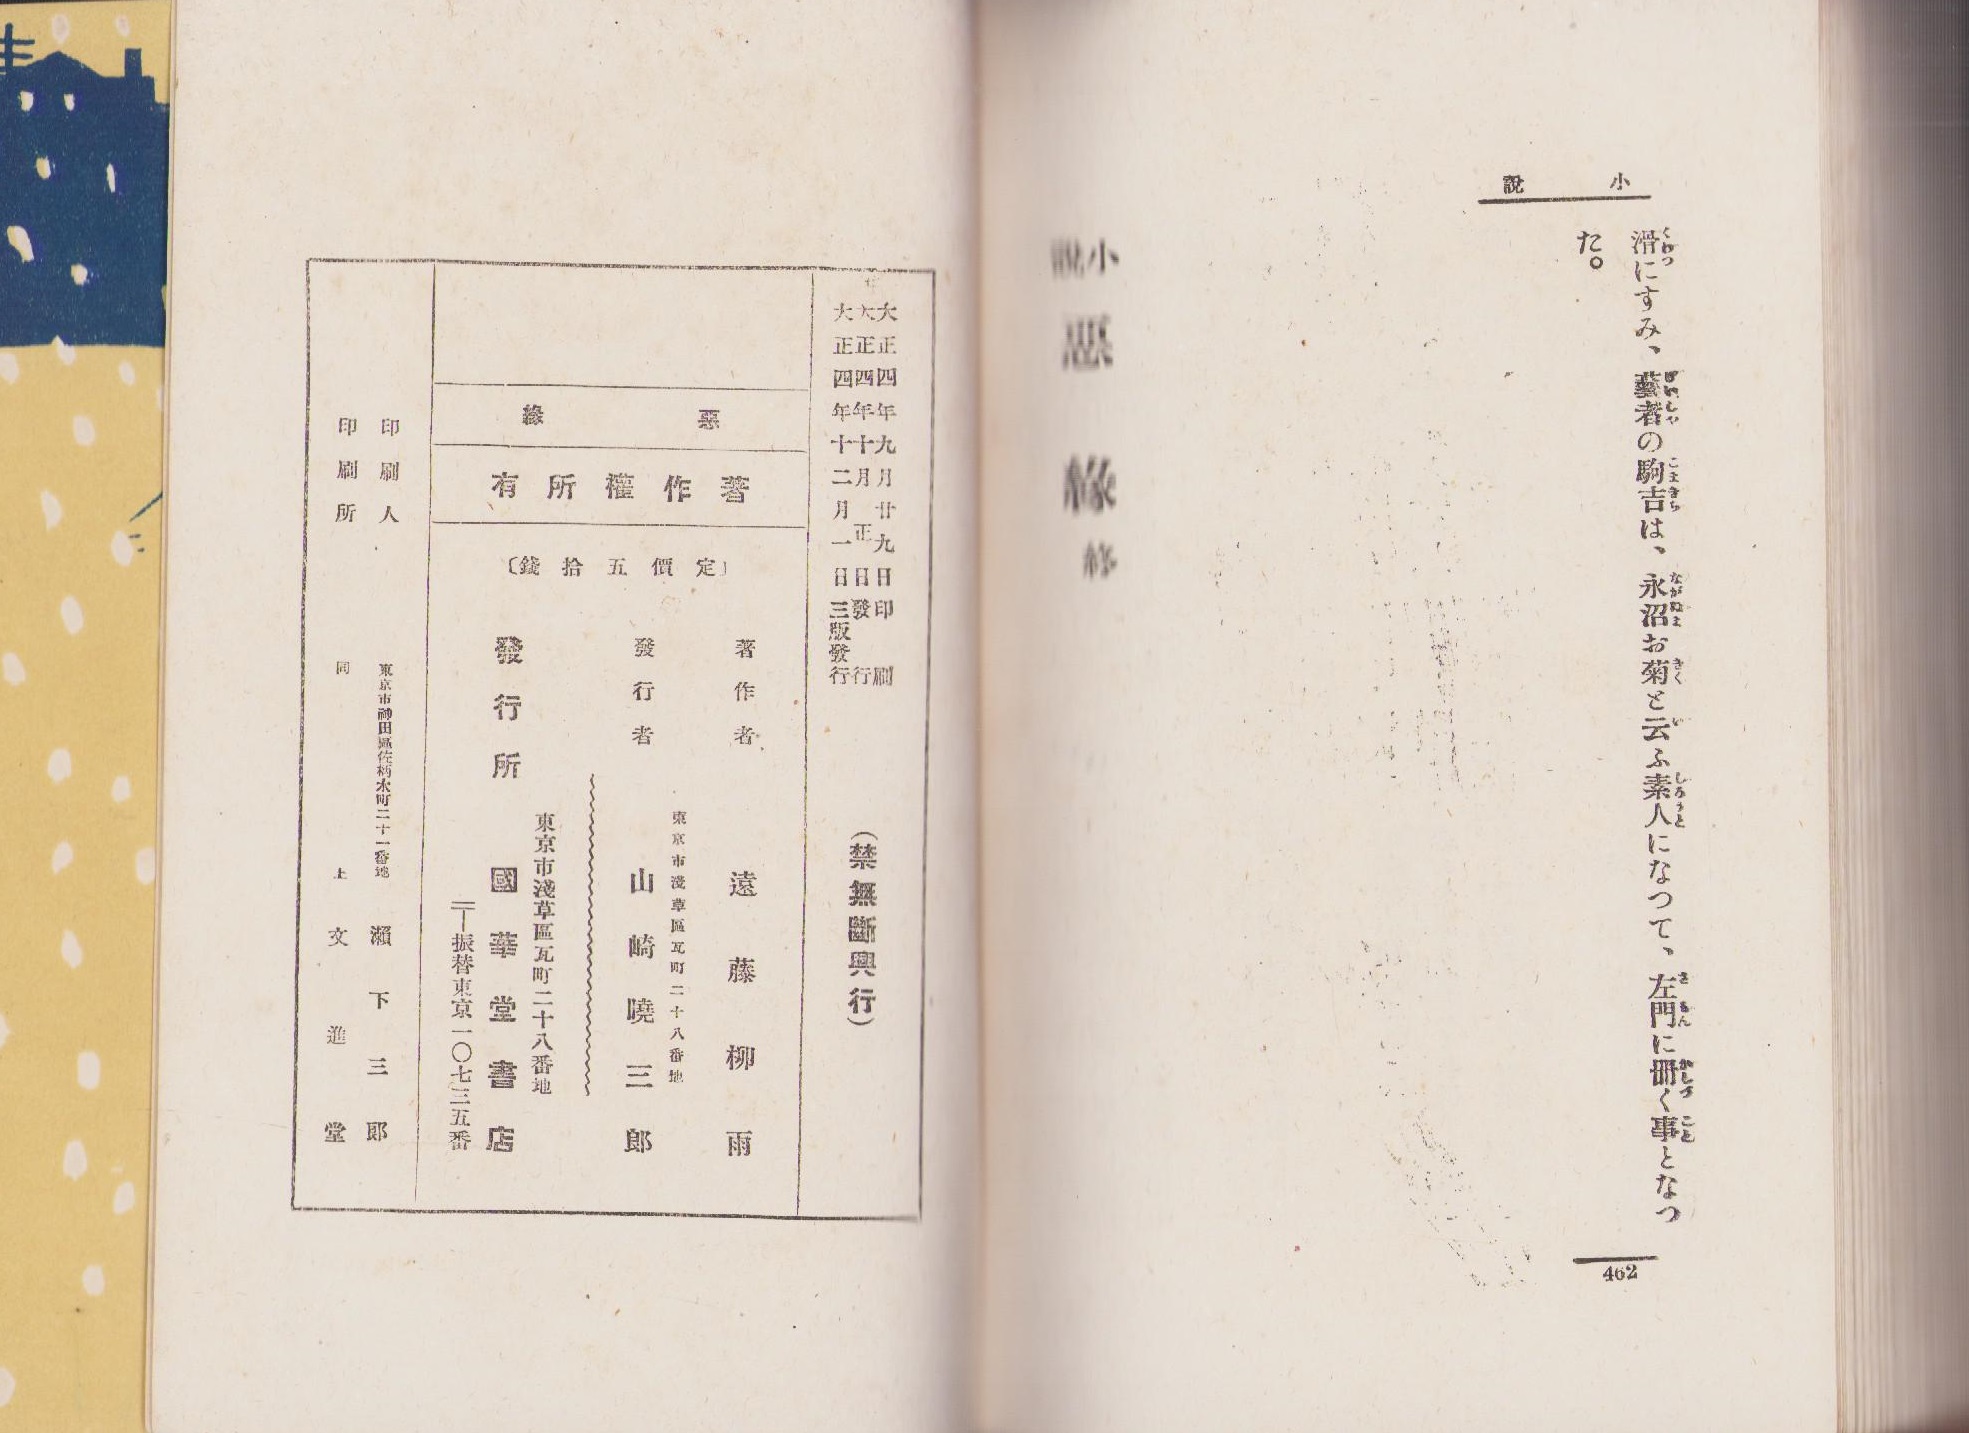 小説
滑にすみ、藝者の駒吉は、永沼お菊と云ふ素人になつて、左門に冊く事となつ
た。
462
小説 惡縁 終
大正四年九月廿九日印刷
大正四年十月正日發行
大正四年十二月一日三版發行
(禁無斷興行)
惡縁
著作權所有
〔定價五拾錢〕
著作者 遠藤柳雨
東京市淺草區瓦町二十八番地
發行者 山崎曉三郎
東京市淺草區瓦町二十八番地
發行所 國華堂書店
振替東京一〇七三五番
印刷人 東京市神田區佐柄木町二十一番地 瀬下三郎
印刷所 同上 文進堂